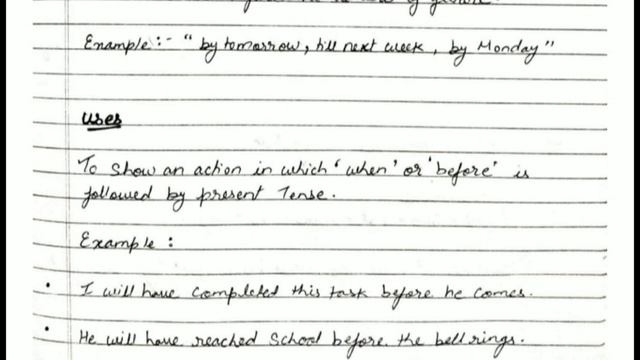 Example :- " by tomorrow, till next week, by Monday "
uses
To show an action in which 'when' or 'before' is
followed by present Tense.
Example :
• I will have completed this task before he comes.
• He will have reached School before the bell rings.